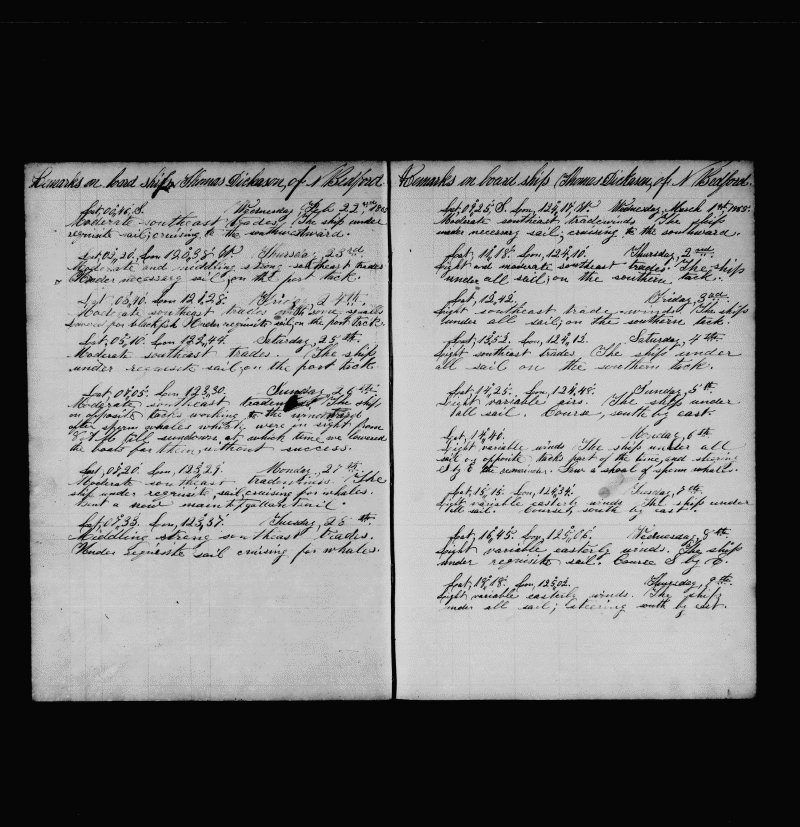 Remarks on board ship Thomas Dickason, of N Bedford
Lat, 04,46, S. Wednesday Feb 22nd 1865
Moderate southeast trades, The ship under
requisite sail; cruising to the southward.
Lat 03,20. Lon, 120,38 W. Thursday, 23rd
Moderate and middling strong southeast trades
Under necessary sail, on the port tack.
Lat 03,10. Lon 121,28. Friday, 24th
Moderate southeast trades with some squalls
Lowered for blackfish Under requisite sail, on the port tack.
Lat, 05,10. Lon, 122,44. Saturday, 25th
Moderate southeast trades. The ship
under requisite sail, on the port tack
Lat, 07,05. Lon, 123,30. Sunday, 26th
Moderate southeast tradewinds. The ship
on opposite tacks working to the windward
after sperm whales which were in sight from
till sundown, at which time we lowered
the boats for them, without success.
Lat, 07,20. Lon, 123,29. Monday, 27th
Moderate southeast tradewinds. The
ship under requisite sail, cruising for whales.
Bent a new maintopgallantsail.
Lat, 07,33. Lon, 123,37. Tuesday, 28th
Middling strong southeast trades.
Under requisite sail cruising for whales.
Remarks on board ship Thomas Dickason, of N Bedford.
Lat, 09,25, S. Lon, 124,17, W. Wednesday March 1st, 1865.
Moderate southeast tradewinds. The ship
under necessary sail; cruising to the southward.
Lat, 11,18. Lon, 124,10. Thursday, 2nd
Light and moderate southeast trades. The ship
under all sail, on the southern tack.
Lat, 12,42. Friday, 3rd
Light southeast trade-winds. The ship
under all sail; on the southern tack.
Lat, 13,52. Lon, 124,12. Saturday, 4th
Light southeast trades The ship under
all sail on the southern tack.
Lat, 14,25. Lon, 124,48. Sunday, 5th
Light variable airs. The ship under
all sail. Course, south by east.
Lat, 14,40. Monday, 6th
Light variable winds The ship under all
sail on opposite tacks part of the time, and steering
S by E the remainder. Saw a shoal of sperm whales.
Lat, 15,15. Lon, 124,34. Tuesday, 7th
Light variable easterly winds The ship under
all sail. Course, south by east.
Lat, 16,45. Lon, 125,06. Wednesday, 8th
Light variable easterly winds. The ship
under requisite sail. Course S by E.
Lat, 18,08. Lon, 125,02. Thursday, 9th
Light variable easterly winds. The ship
under all sail; steering south by east.